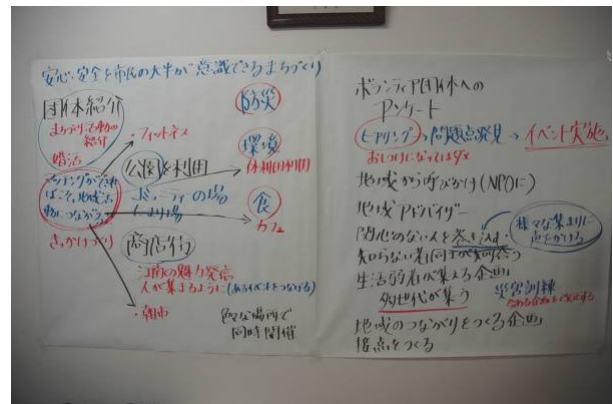 安心・安全を市民の大半が意識できるまちづくり
団体紹介
まちづくり活動の
紹介
婚活
マッチングができれ
ばこそ、地域活
動につながる
きっかけづくり
・フィットネス
公園を利用
の場
商店街
江南の魅力発信
人が集まるように(あるイベントをつなげる)
・朝市
色々な場所で
同時開催
防災
環境
休耕田利用
食
カフェ
ボランティア団体への
アンケート
ヒアリング→問題点発見→イベント実施
おしつけになってはダメ
地域から呼びかけ(NPOに)
地域アドバイザー
関心のない人を巻き込む
様々な集まりに
声をかける
知らない者同士が知り合う
生活弱者が集える企画
多世代が集う
災害訓練
地域のつながりをつくる企画
接点をつくる